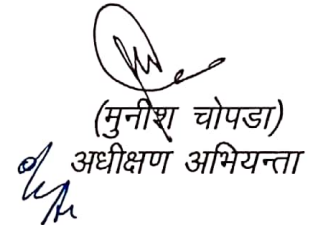 (मुनीश चोपडा)
अधीक्षण अभियन्ता